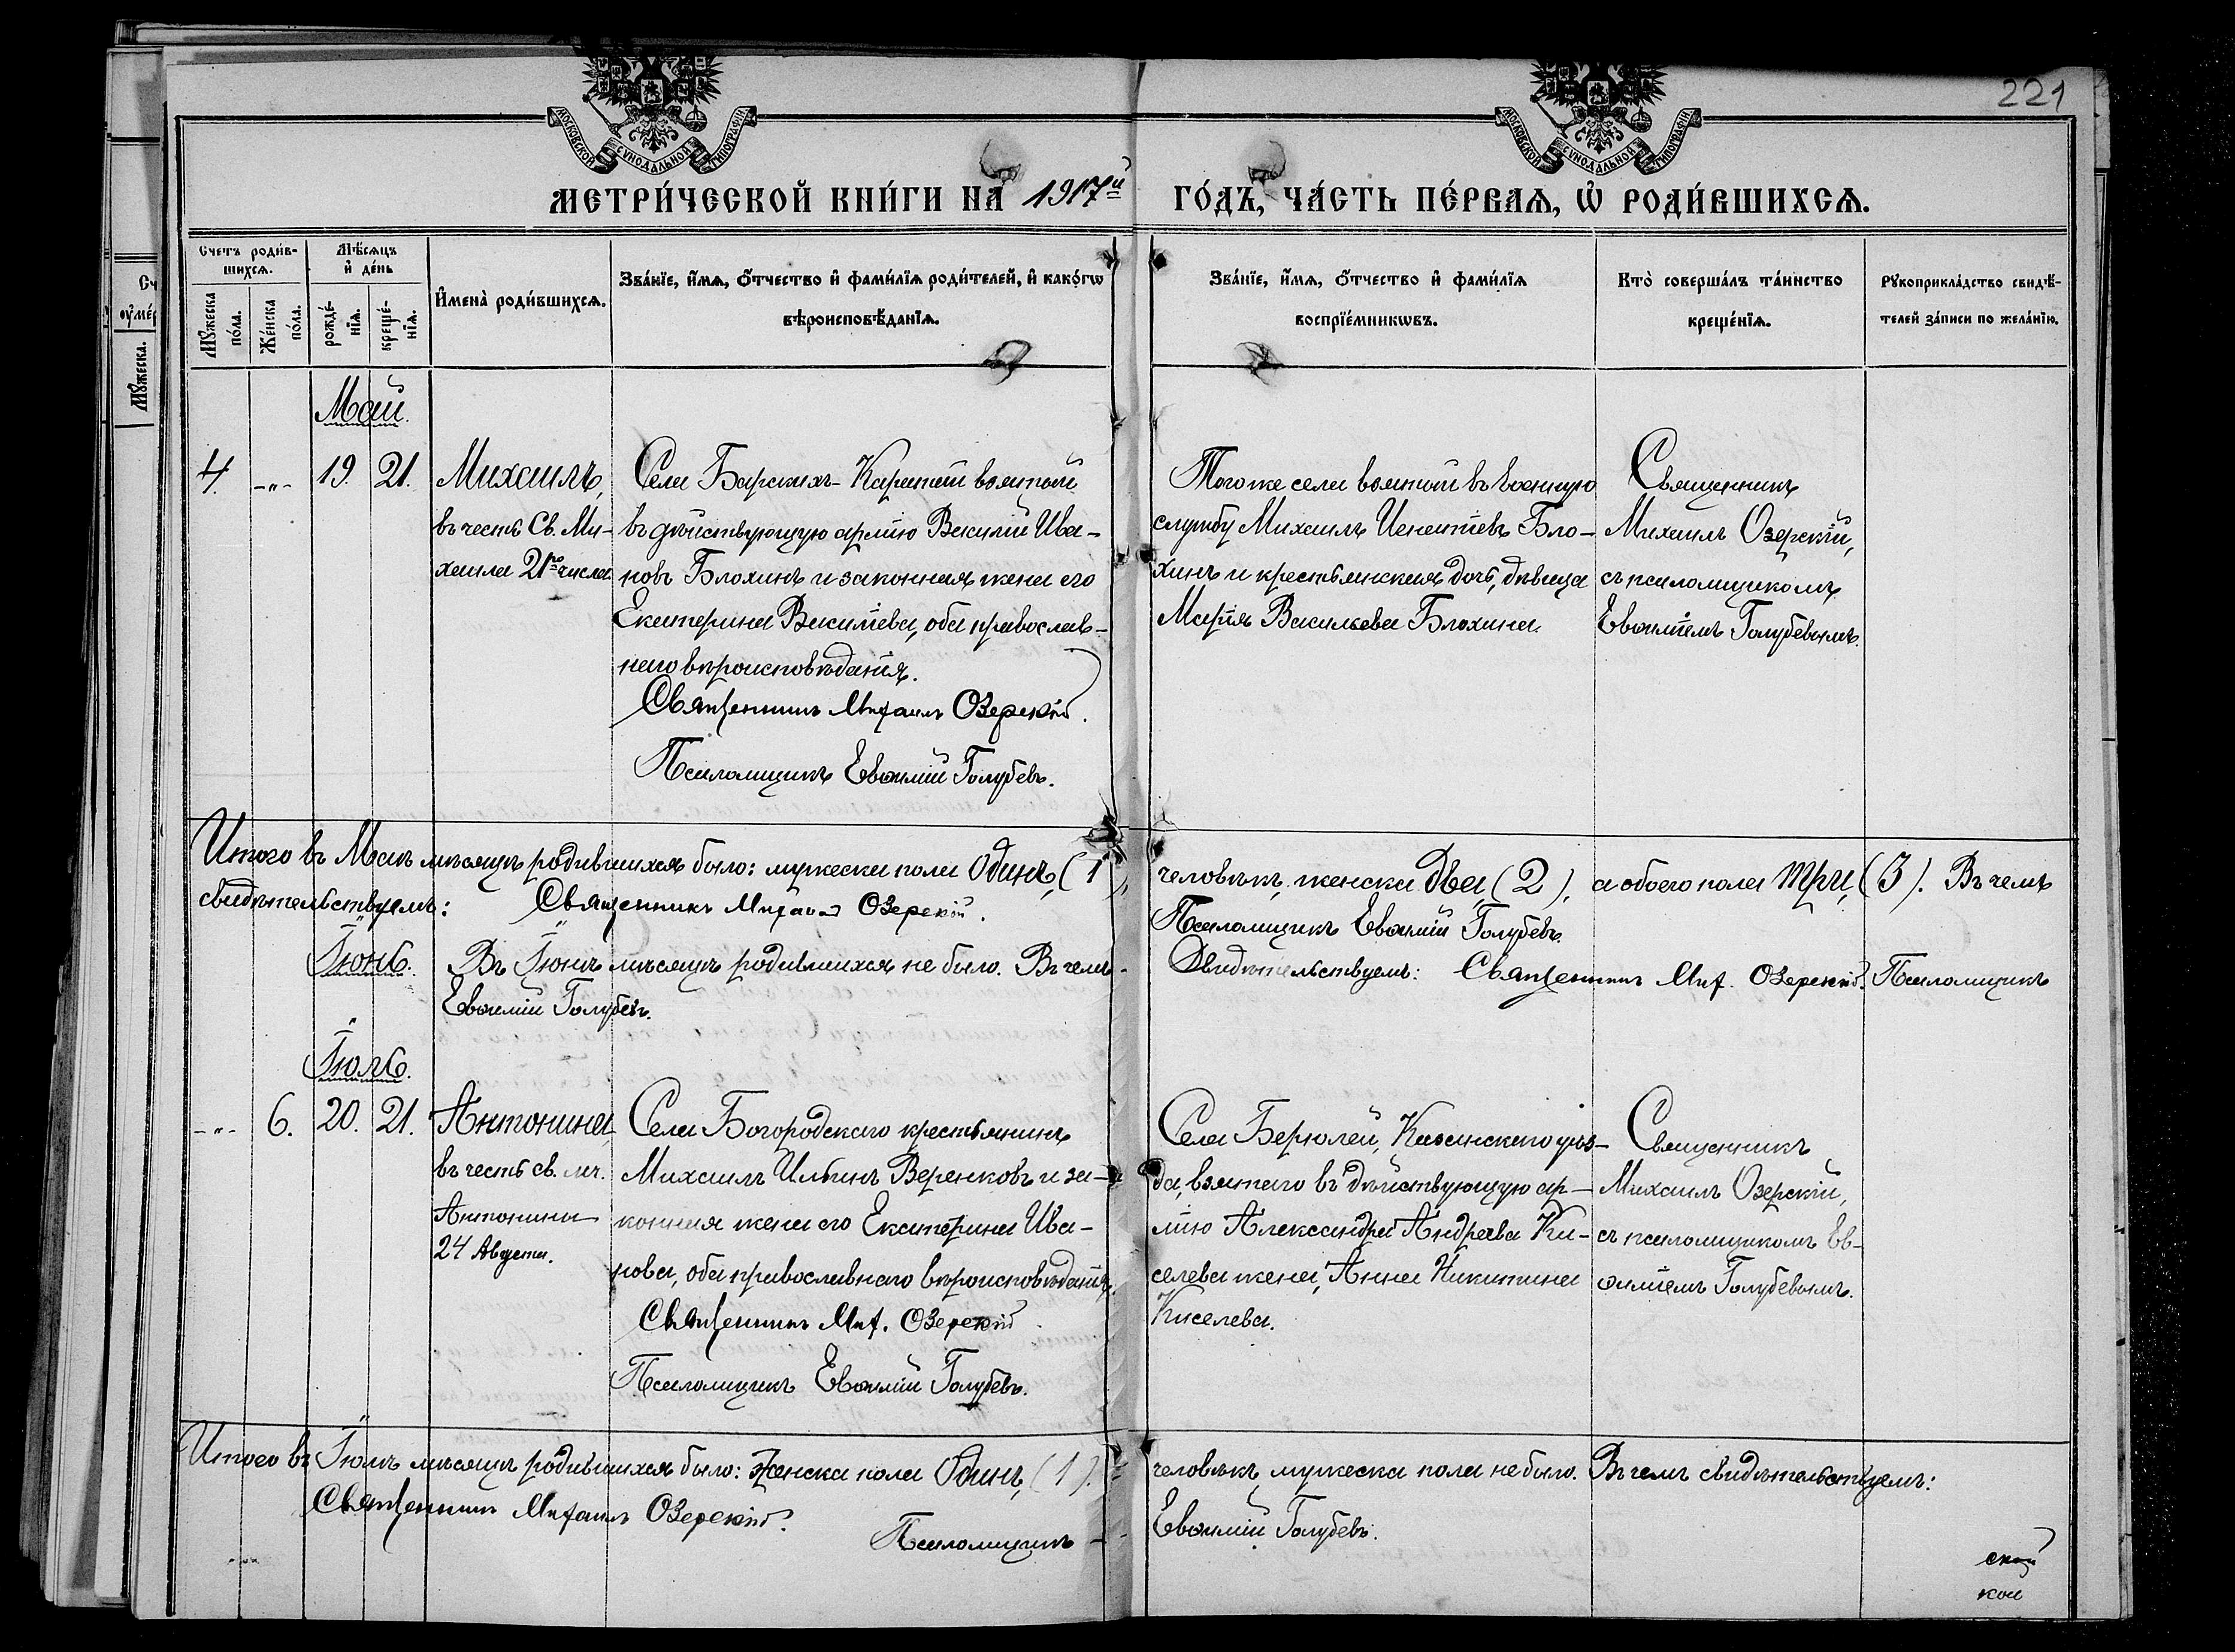 221
МОСКОВСКОЙ СѴНОДАЛЬНОЙ ТИПОГРАФІИ
МОСКОВСКОЙ СѴНОДАЛЬНОЙ ТИПОГРАФІИ
МЕТРИ́ЧЕСКОЙ КНИ́ГИ НА 1917й ГО́ДЪ, ЧА́СТЬ ПЕ́РВАѦ, Ѡ҆ РОДИ́ВШИХСѦ.
Счетъ роди́в-
шихсѧ.
Мѣ́сѧцъ
и҆ де́нь
Мꙋжеска
по́ла.
Же́нска
по́ла.
рожде́-
нїѧ.
креще́-
нїѧ.
И҆мена̀ роди́вшихсѧ.
Зва́нїе, и҆́мѧ, ѻ҆́тчество и҆ фами́лїѧ роди́телей, и҆ како́гѡ
вѣроисповѣ́данїѧ.
Зва́нїе, и҆́мѧ, ѻ҆́тчество и҆ фами́лїѧ
воспрїе́мникѡвъ.
Кто̀ соверша́лъ та́инство
креще́нїѧ.
Рꙋкоприкла́дство свидѣ́-
телей за́писи по жела́нїю.
Май.
4. -"- 19. 21.
Михаилъ,
въ честь Св. Ми-
хаила 21го числа
Села Барскихъ-Каратай взятый
въ дѣйствующую армію Василій Ива-
новъ Блохинъ и законная жена его
Екатерина Васильева, оба православ-
наго вѣроисповѣданія.
Священникъ Михаилъ Озерскій.
Псаломщикъ Евѳимій Голубевъ.
Того же села взятый въ военную
службу Михаилъ Игнатіевъ Бло-
хинъ и крестьянская дочь, дѣвица
Марія Васильева Блохина.
Священникъ
Михаилъ Озерскій,
съ псаломщикомъ
Евѳиміемъ Голубевымъ.
Итого въ Маѣ мѣсяцѣ родившихся было: мужеска пола Одинъ, (1), человѣкъ, женска Два, (2), а обоего пола три, (3). Въ чемъ
свидѣтельствуемъ: Священникъ Михаил Озерскій. Псаломщикъ Евѳимій Голубевъ.
Іюнь. Въ Іюнѣ мѣсяцѣ родившихся не было. Въ чемъ Свидѣтельствуемъ: Священникъ Мих. Озерскій. Псаломщикъ
Евѳимій Голубевъ.
Іюль.
-"- 6. 20. 21.
Антонина
въ честь св. мч.
Антонины
24 Августа.
Села Богородскаго крестьянинъ
Михаилъ Ильинъ Веренковъ и за-
конная жена его Екатерина Ива-
нова, оба православнаго вѣроисповѣданія.
Священникъ Мих. Озерскій
Псаломщикъ Евѳимій Голубевъ.
Села Берюлей, Казанскаго уѣз-
да, взятаго въ дѣйствующую ар-
мію Александра Андреева Ки-
селева жена, Анна Никитина
Киселева.
Священникъ
Михаилъ Озерскій,
съ псаломщикомъ Ев-
ѳиміемъ Голубевымъ.
Итого въ Іюлѣ мѣсяцѣ родившихся было: женска пола Одинъ, (1). человѣкъ, мужеска пола не было. Въ чемъ свидѣтельствуемъ:
Священникъ Михаилъ Озерскій.
Псаломщикъ - Евѳимій Голубевъ.
ской
кои